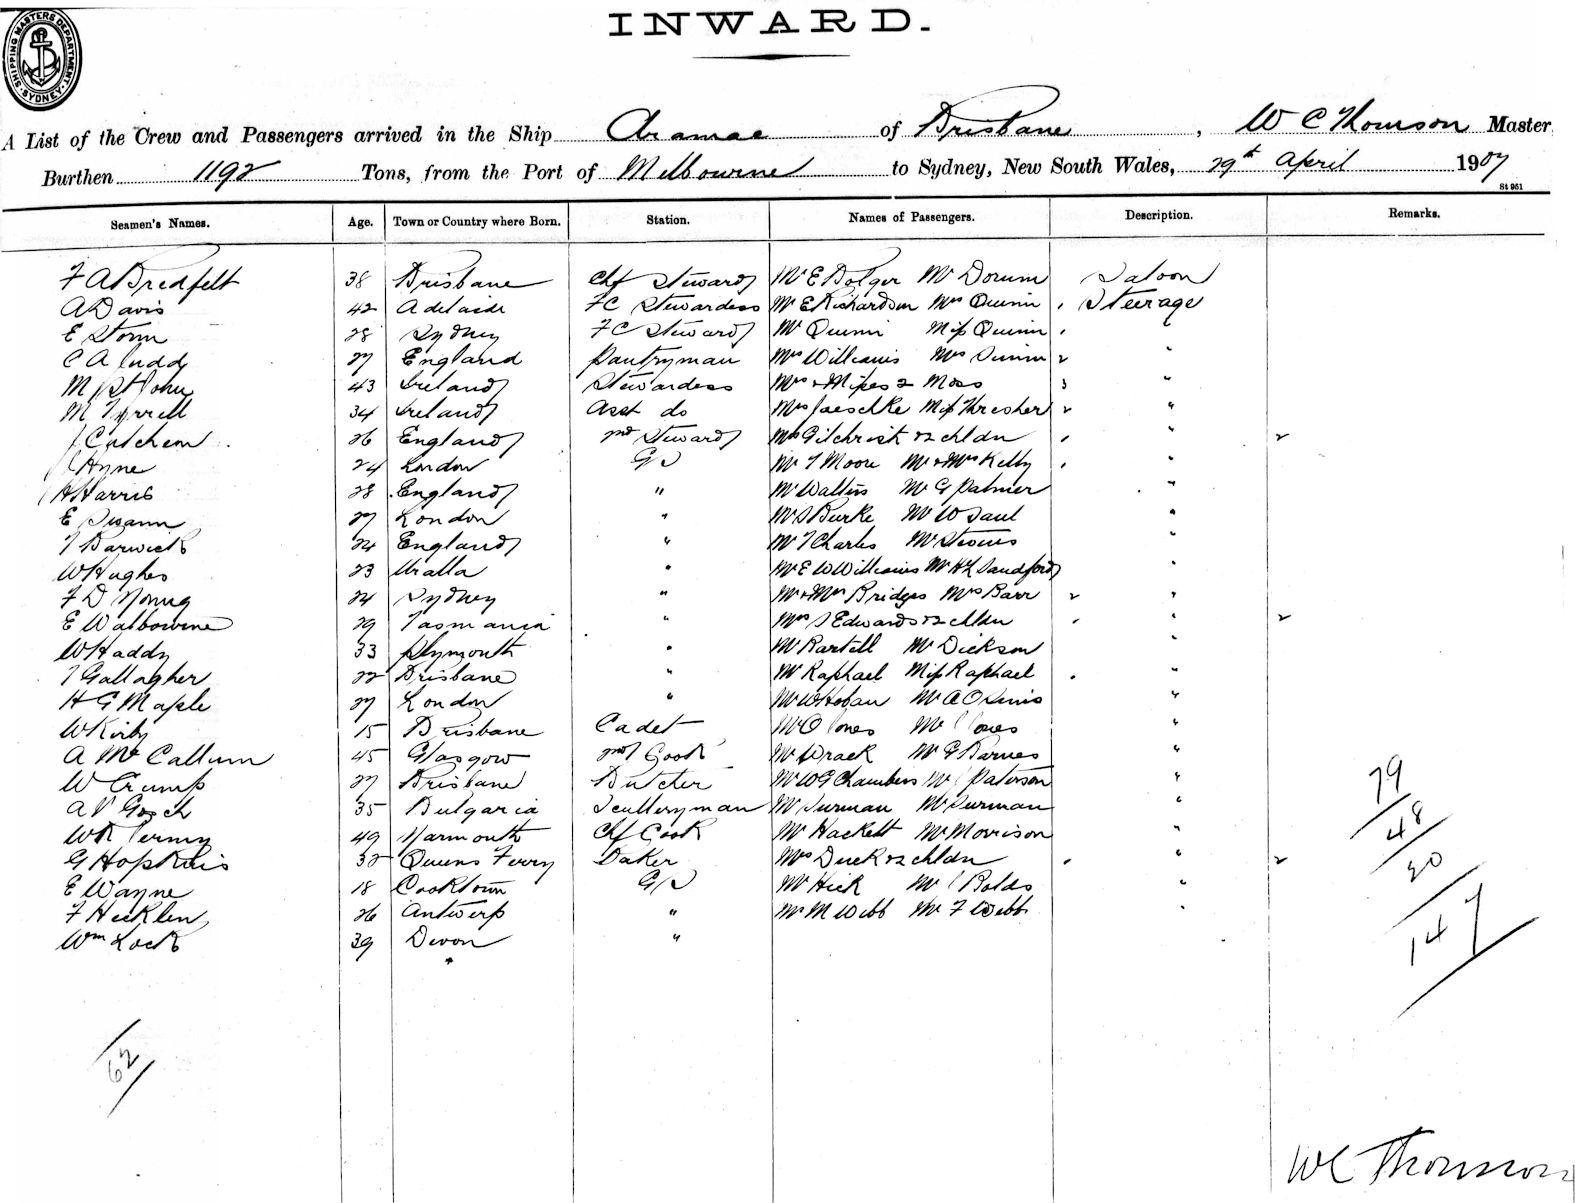 SHIPPING MASTERS DEPARTMENT. SYDNEY.
INWARD.
A List of the Crew and Passengers arrived in the Ship Aramac of Brisbane, W C Thomson Master
Burthen 1192 Tons, from the Port of Melbourne to Sydney, New South Wales, 29th April 1907
St 951
Seamen's Names. Age. Town or Country where Born. Station. Names of Passengers. Description. Remarks.
F A Bredfelt 38 Brisbane Chf Steward Mr E Bolger Mr Dorum Saloon
A Davis 42 Adelaide FC Stewardess Mr E Richardson Mrs Quinn Steerage
E Storm 28 Sydney FC Steward Mr Quinn Miss Quinn "
C A Judd 27 England Pantryman Mrs Williams Mrs "
M St John 43 Ireland Stewardess Mrs & Misses 2 Moss 3 "
M Tyrrell 34 Ireland Asst do Mrs Jaeschke Miss Thresher 2 "
J Cutchem 26 England 2nd Steward Mrs Gilchrist & 2 chldn " 2
J Hyne 24 London GS Mr T Moore Mr & Mrs Kelly "
H Harris 28 England " Mr Walters Mr G Palmer "
E Swann 27 London " Mr S Burke Mr W Saul "
T Barwick 24 England " Mr T Charles Mr Stevens "
W Hughes 23 Uralla " Mr E W Williams Mr H L Sandford "
F D Young 24 Sydney " Mr & Mrs Bridges Mrs Barr 2 "
E Walbourne 29 Tasmania " Mrs S Edwards & 2 chldn " 2
W Haddy 33 Plymouth " Mr Bartell Mr Dickson "
T Gallagher 22 Brisbane " Mr Raphael Miss Raphael "
H G Maple 27 London " Mr W Hoban Mr A O "
W Kirby 15 Brisbane Cadet Mr O Jones Mr J Jones "
A McCallum 45 Glasgow 2nd Cook Mr Wrack Mr G Barnes "
W Crump 27 Brisbane Butcher Mr W G Chambers Mr J Paterson "
A P Gosch 35 Bulgaria Sculleryman Mr Surman Mr Surman "
W R Jermy 49 Yarmouth Chf Cook Mr Hackett Mr Morrison "
G Hopkins 32 Queens Ferry Baker Mrs Duck & 2 chldn " 2
E Wayne 18 Cooktown GS Mr Hick Mr J Bolds "
F Hicklen 26 Antwerp " Mr M Webb Mr F Webb "
Wm Lock 39 Devon "
79
48
20
147
62
W C Thomson